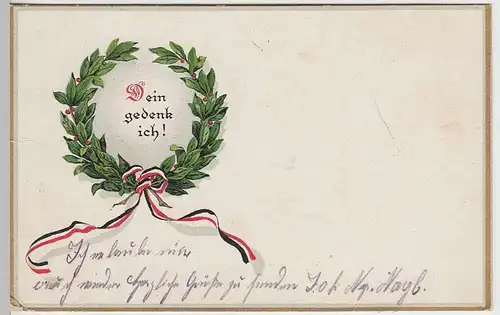 Dein
gedenk
ich!
Ich erlaube mir
auch wieder herzliche Grüße zu senden Joh.